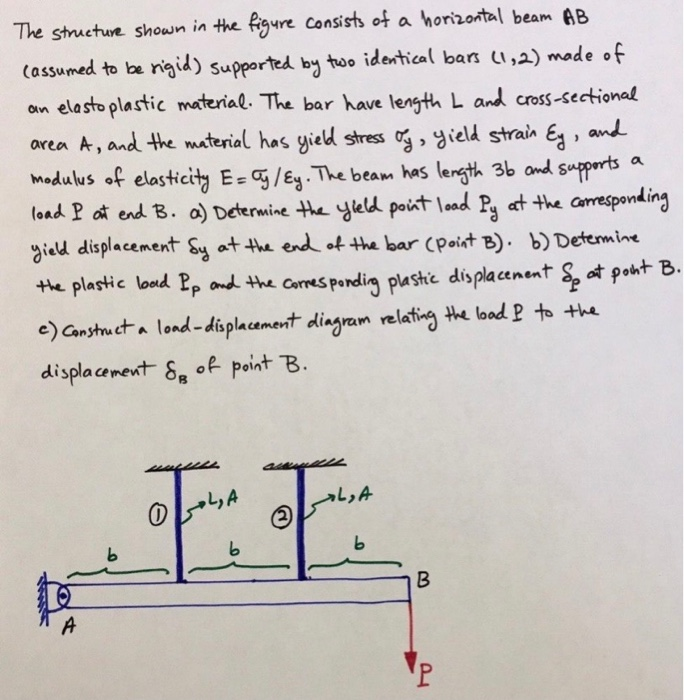 The structure shown in the figure consists of a horizontal beam AB
(assumed to be rigid) supported by two identical bars (1,2) made of
an elastoplastic material. The bar have length L and cross-sectional
area A, and the material has yield stress σy, yield strain Ey, and
modulus of elasticity E = σy/Ey. The beam has length 3b and supports a
load P at end B. a) Determine the yield point load Py at the corresponding
yield displacement δy at the end of the bar (point B). b) Determine
the plastic load Pp and the corresponding plastic displacement δp at point B.
c) Construct a load-displacement diagram relating the load P to the
displacement δB of point B.
① L, A ② L, A
b b b
B
A
P